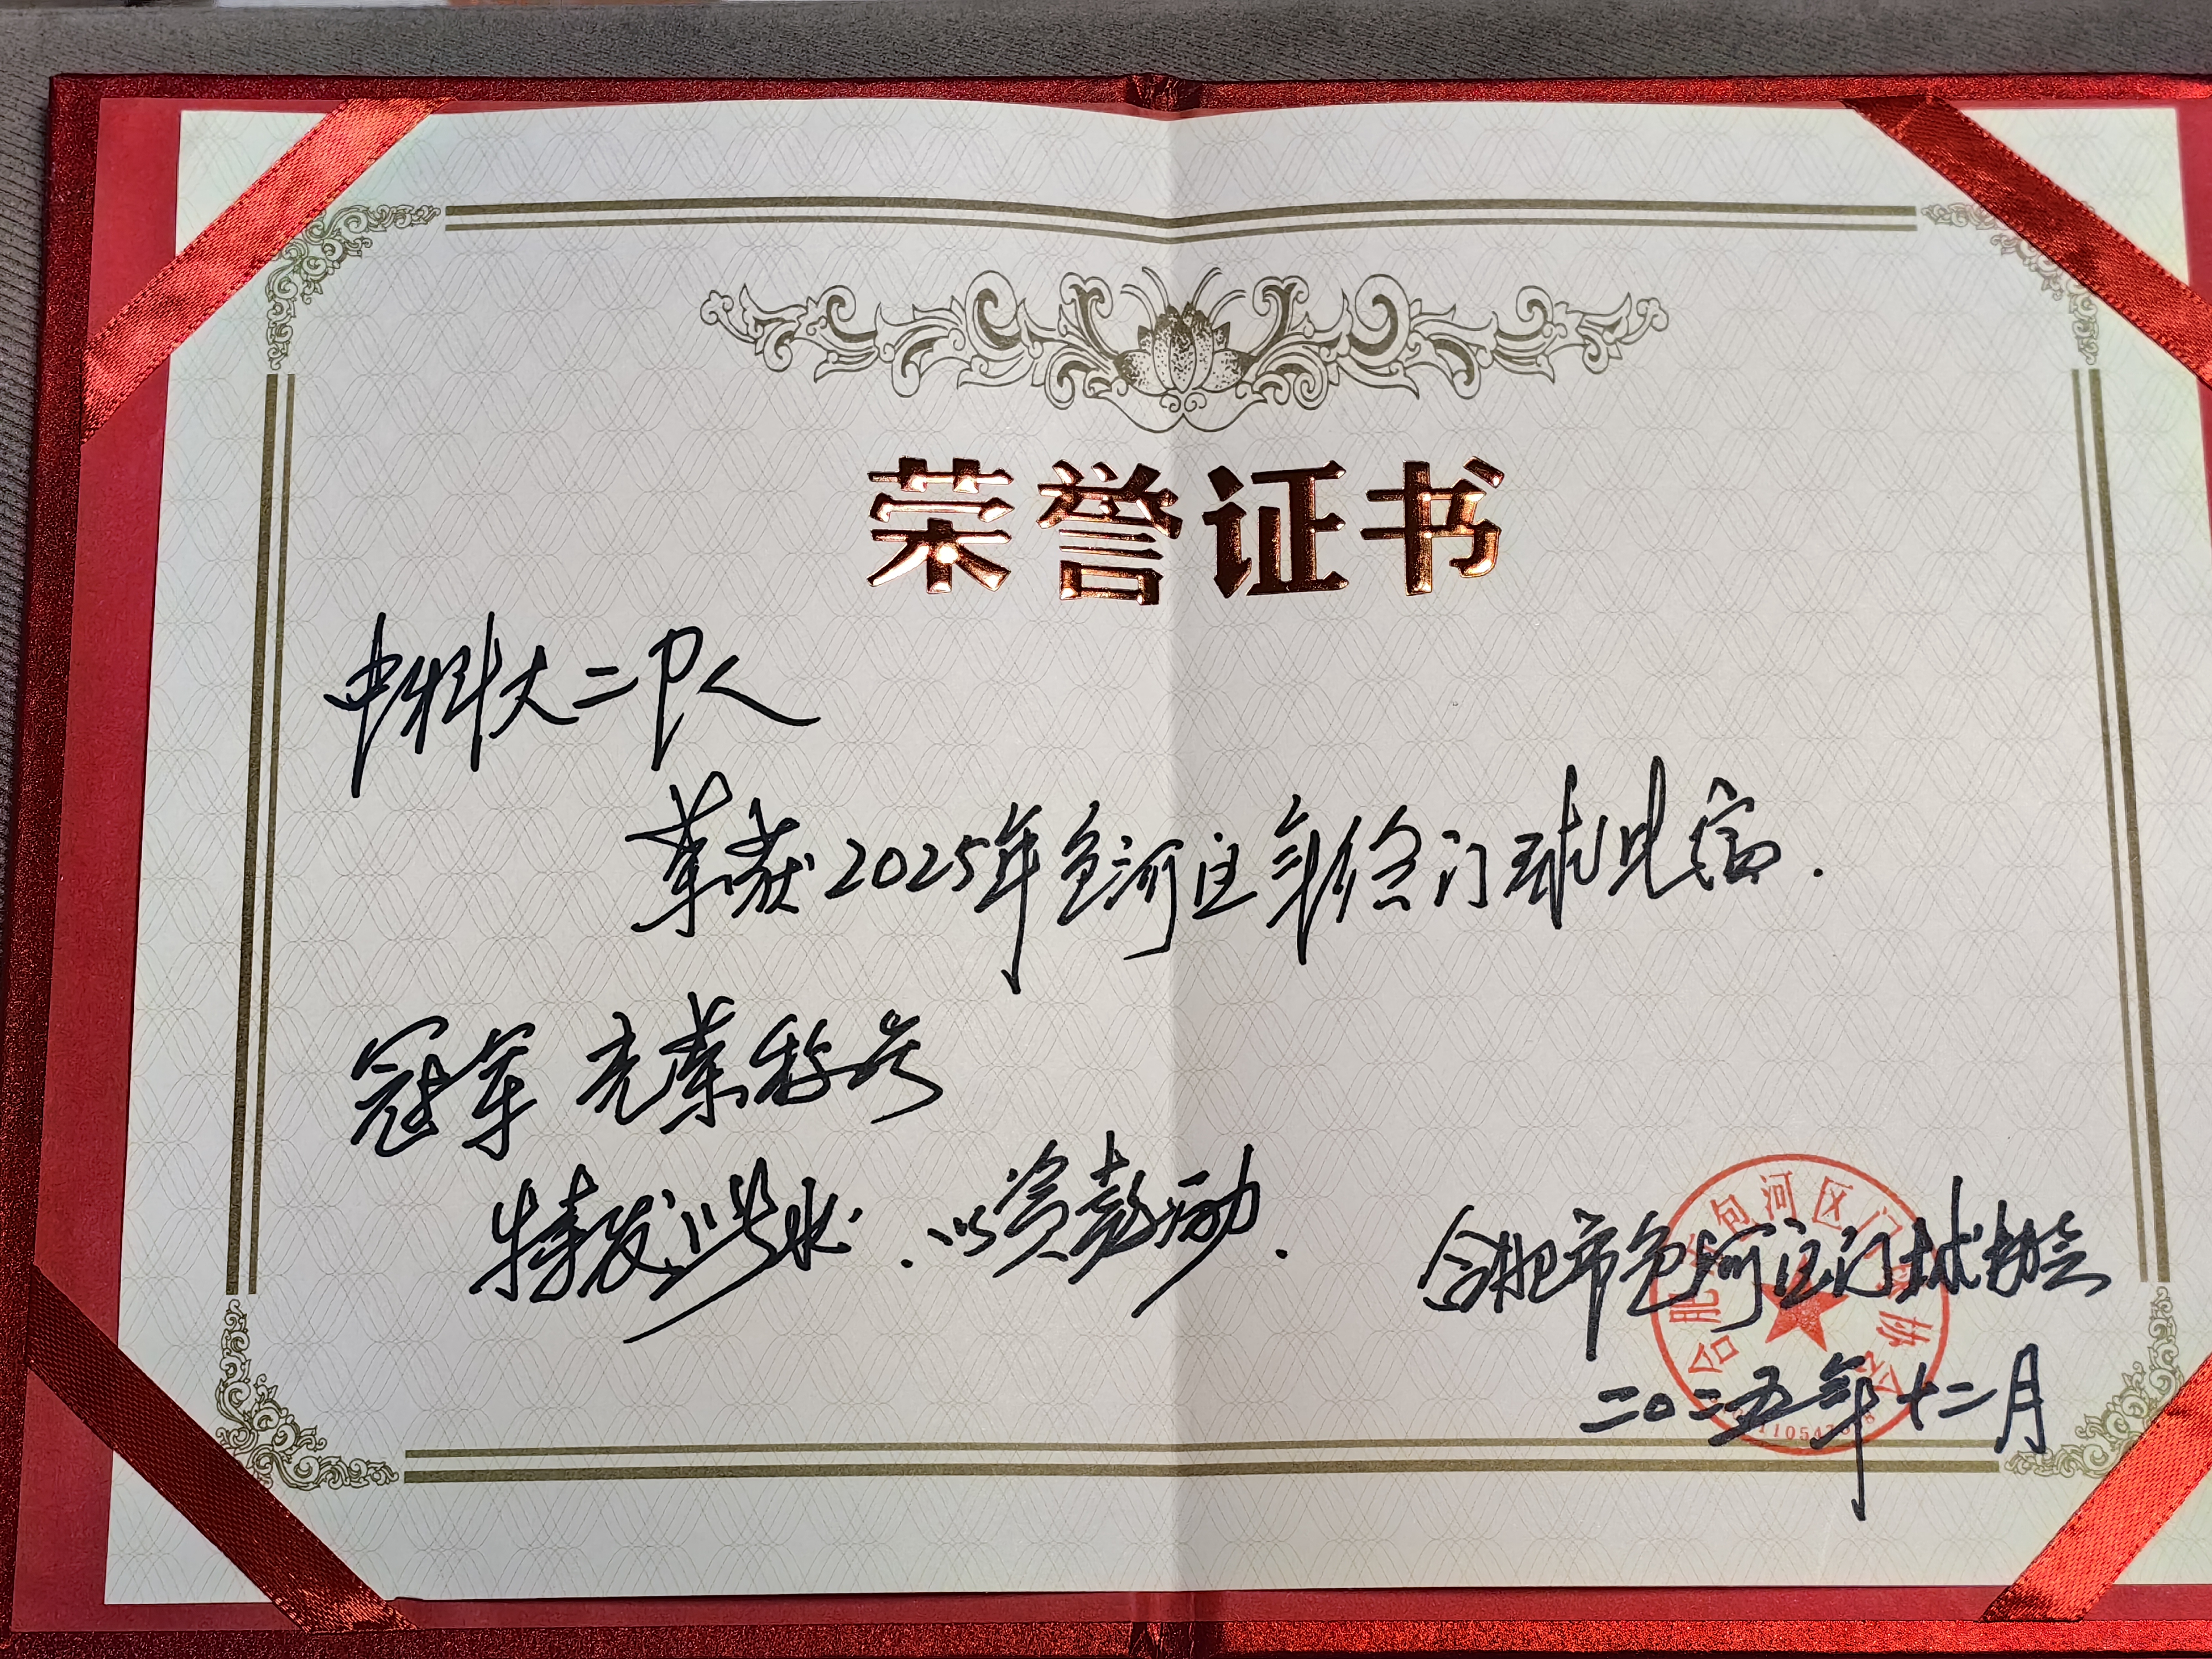 荣誉证书
中科大二队
荣获2025年包河区年终门球比赛.
冠军 光荣称号
特发此状.以资鼓励.
合肥市包河区门球协会
二〇二五年十二月
合肥市包河区门球协会